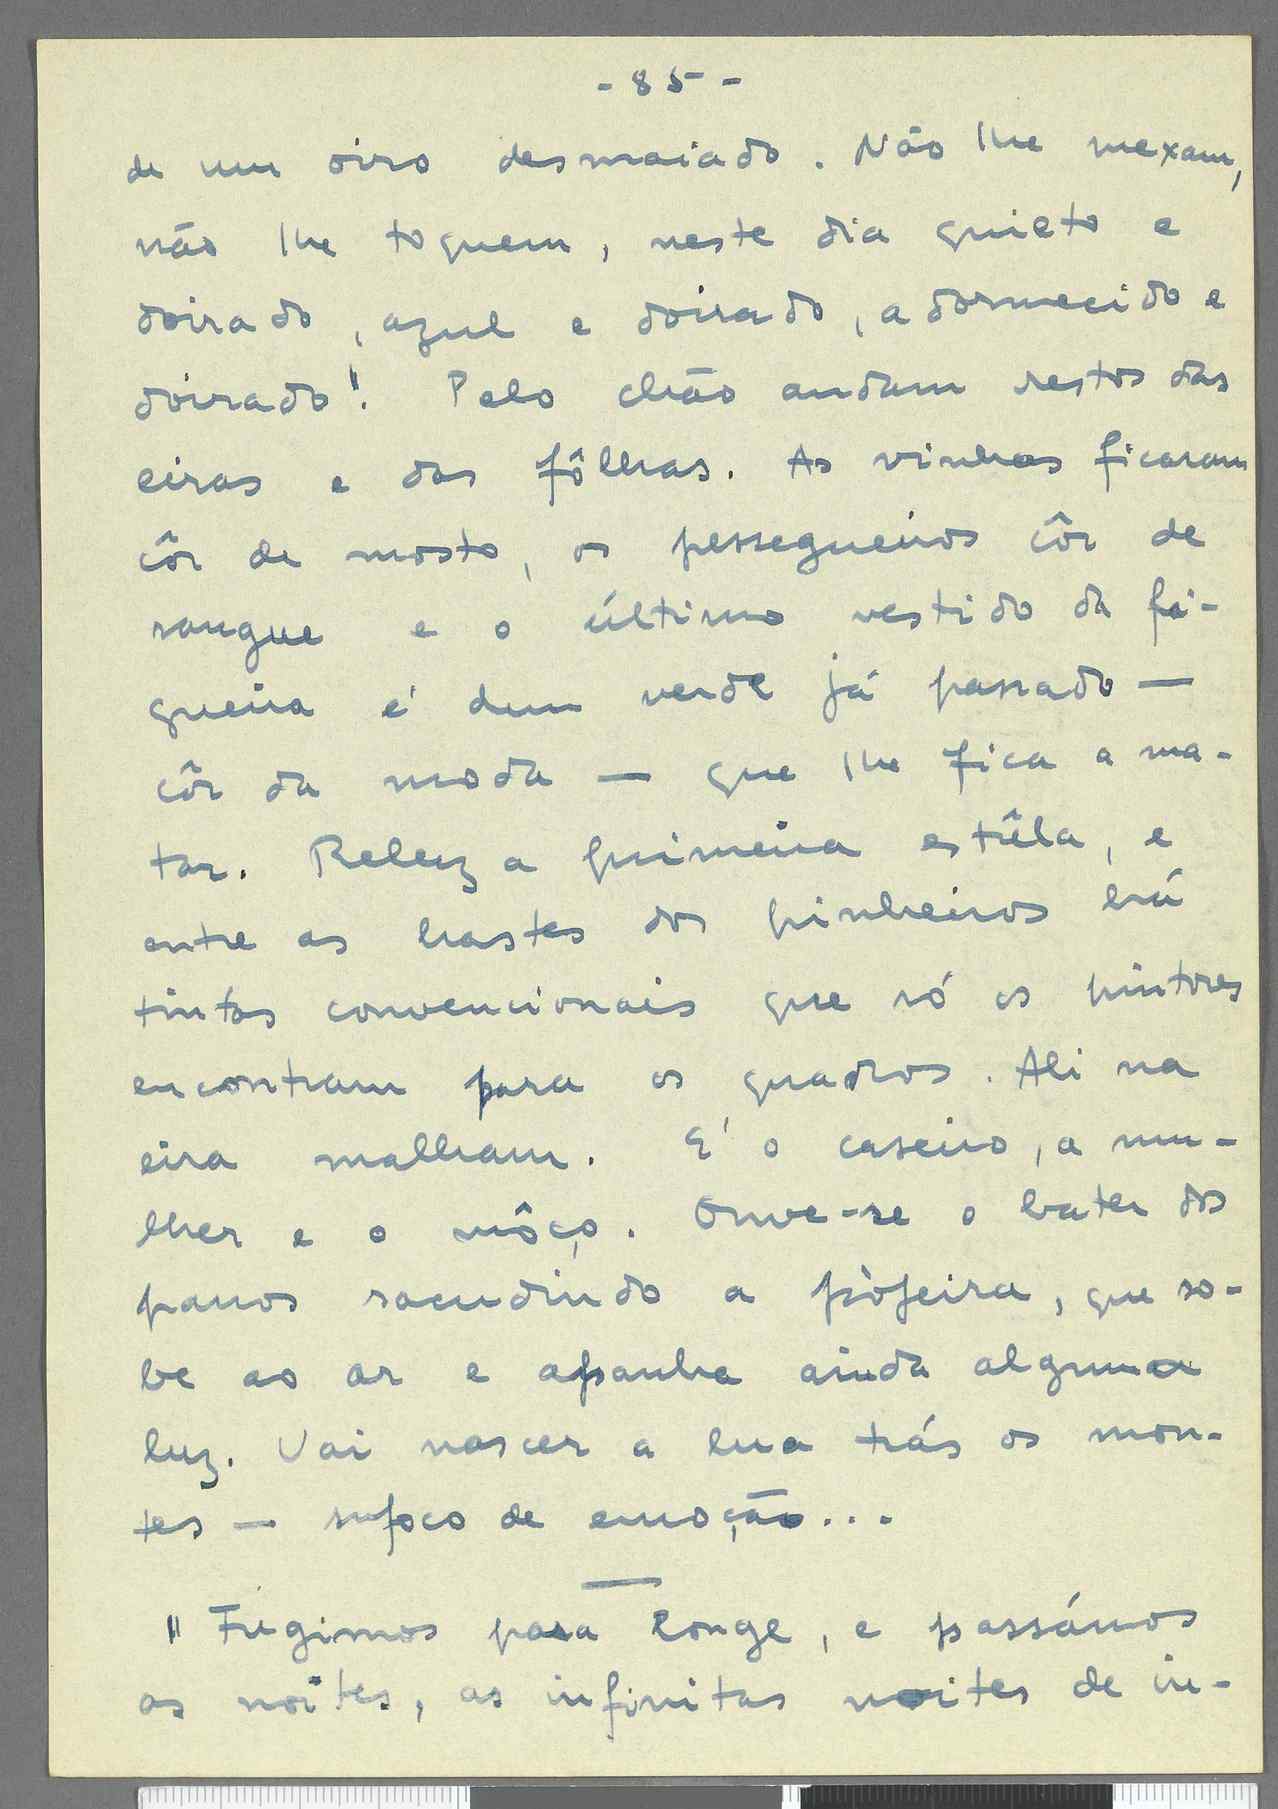 - 85 -
de um oiro desmaiado. Não lhe mexam,
não lhe toquem, neste dia quieto e
doirado, azul e doirado, adormecido e
doirado"! Pelo chão andam restos das
eiras e das fôlhas. As vinhas ficaram
côr de mosto, os pessegueiros côr de
sangue e o último vestido da fi-
gueira é dum verde já passado —
côr da moda — que lhe fica a ma-
tar. Reluz a primeira estrêla, e
entre as hastes dos pinheiros há
tintas convencionais que só os pintores
encontram para os quadros. Ali na
eira malham. É o caseiro, a mu-
lher e o môço. Ouve-se o bater dos
panos sacudindo a pòjeira, que so-
be ao ar e apanha ainda alguma
luz. Vai nascer a lua trás os mon-
tes — sufoco de emoção...
"Fugimos para longe, e passámos
as noites, as infinitas noites de in-